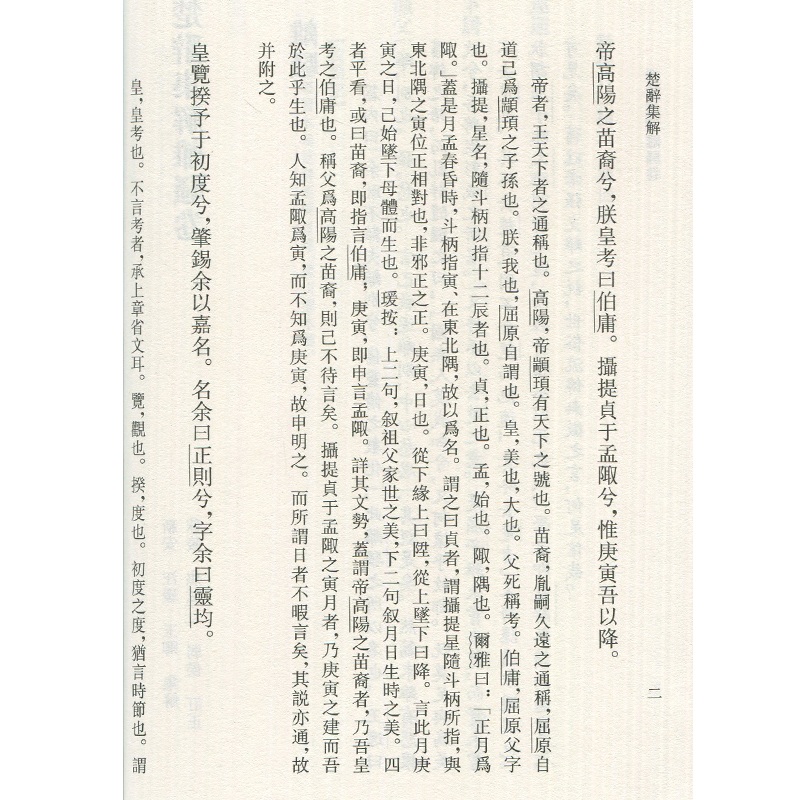 楚辭集解
二
帝高陽之苗裔兮，朕皇考曰伯庸。攝提貞于孟陬兮，惟庚寅吾以降。
帝者，王天下者之通稱也。高陽，帝顓頊有天下之號也。苗裔，胤嗣久遠之通稱，屈原自
道己爲顓頊之子孫也。朕，我也，屈原自謂也。皇，美也，大也。父死稱考。伯庸，屈原父字
也。攝提，星名，隨斗柄以指十二辰者也。貞，正也。孟，始也。陬，隅也。爾雅曰：「正月爲
陬。」蓋是月孟春昏時，斗柄指寅、在東北隅，故以爲名。謂之曰貞者，謂攝提星隨斗柄所指，與
東北隅之寅位正相對也，非邪正之正。庚寅，日也。從下緣上曰陞，從上墜下曰降。言此月庚
寅之日，己始墜下母體而生也。瑗按：上二句，叙祖父家世之美，下二句叙月日生時之美。四
者平看，或曰苗裔，即指言伯庸，庚寅，即申言孟陬。詳其文勢，蓋謂帝高陽之苗裔者，乃吾皇
考之伯庸也。稱父爲高陽之苗裔，則己不待言矣。攝提貞于孟陬之寅月者，乃庚寅之建而吾
於此乎生也。人知孟陬爲寅，而不知爲庚寅，故申明之。而所謂日者不暇言矣，其説亦通，故
并附之。
皇覽揆予于初度兮，肇錫余以嘉名。名余曰正則兮，字余曰靈均。
皇，皇考也。不言考者，承上章省文耳。覽，觀也。揆，度也。初度之度，猶言時節也。謂